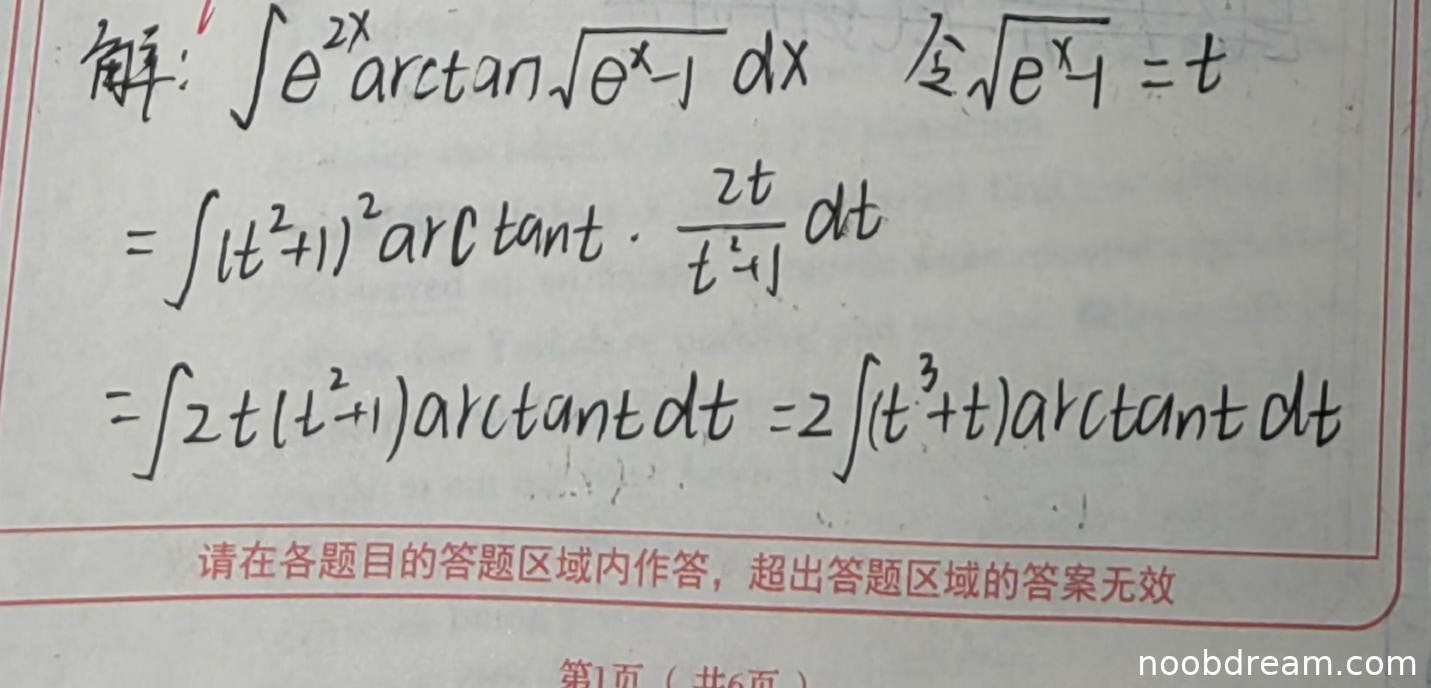 解: ∫e^{2x}arctan√(e^x-1) dx 令√(e^x-1) = t
= ∫(t²+1)² arctant · 2t/(t²+1) dt
= ∫2t(t²+1)arctantdt = 2∫(t³+t)arctant dt
请在各题目的答题区域内作答，超出答题区域的答案无效
第1页（共6页）
noobdream.com